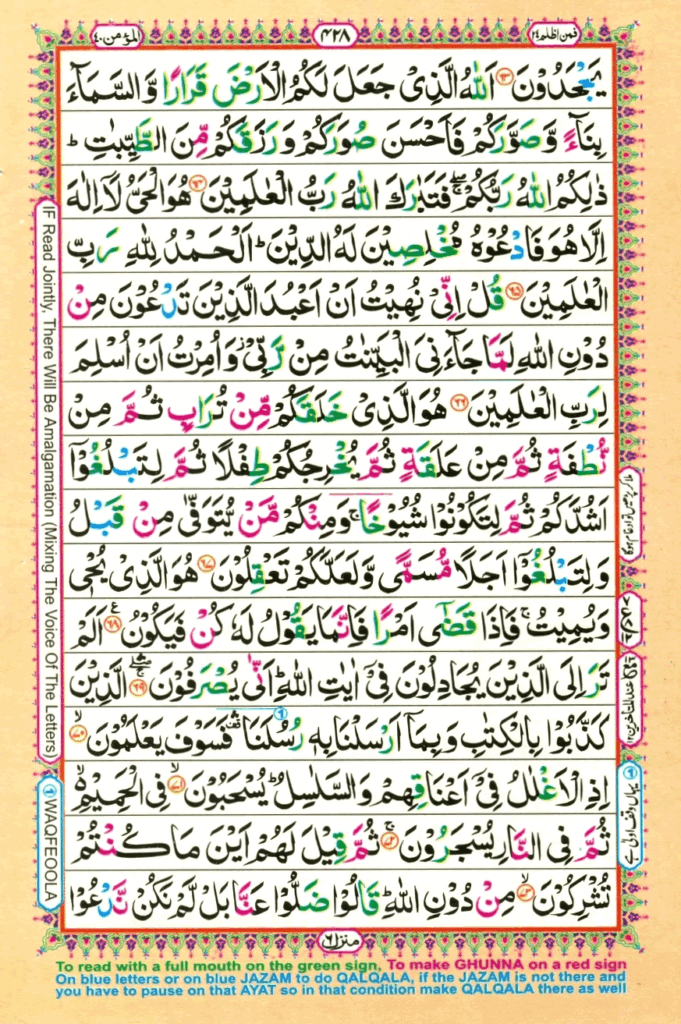 المؤمن ٤٠
٤٢٨
فمن اظلم ٢٤
يَجْحَدُوْنَ ﴿٦٣﴾ اَللّٰهُ الَّذِىْ جَعَلَ لَكُمُ الْاَرْضَ قَرَارًا وَّالسَّمَآءَ
بِنَآءً وَّصَوَّرَكُمْ فَاَحْسَنَ صُوَرَكُمْ وَرَزَقَكُمْ مِّنَ الطَّيِّبٰتِ ؕ
ذٰلِكُمُ اللّٰهُ رَبُّكُمْ ۖۚ فَتَبٰرَكَ اللّٰهُ رَبُّ الْعٰلَمِيْنَ ﴿٦٤﴾ هُوَ الْحَىُّ لَاۤ اِلٰهَ
اِلَّا هُوَ فَادْعُوْهُ مُخْلِصِيْنَ لَهُ الدِّيْنَ ؕ اَلْحَمْدُ لِلّٰهِ رَبِّ
الْعٰلَمِيْنَ ﴿٦٥﴾ قُلْ اِنِّىْ نُهِيْتُ اَنْ اَعْبُدَ الَّذِيْنَ تَدْعُوْنَ مِنْ
دُوْنِ اللّٰهِ لَمَّا جَآءَنِىَ الْبَيِّنٰتُ مِنْ رَّبِّىْ وَاُمِرْتُ اَنْ اُسْلِمَ
لِرَبِّ الْعٰلَمِيْنَ ﴿٦٦﴾ هُوَ الَّذِىْ خَلَقَكُمْ مِّنْ تُرَابٍ ثُمَّ مِنْ
نُّطْفَةٍ ثُمَّ مِنْ عَلَقَةٍ ثُمَّ يُخْرِجُكُمْ طِفْلًا ثُمَّ لِتَبْلُغُوْۤا
اَشُدَّكُمْ ثُمَّ لِتَكُوْنُوْا شُيُوْخًا ۚ وَمِنْكُمْ مَّنْ يُّتَوَفّٰى مِنْ قَبْلُ
وَلِتَبْلُغُوْۤا اَجَلًا مُّسَمًّى وَّلَعَلَّكُمْ تَعْقِلُوْنَ ﴿٦٧﴾ هُوَ الَّذِىْ يُحْىٖ
وَيُمِيْتُ ۚ فَاِذَا قَضٰٓى اَمْرًا فَاِنَّمَا يَقُوْلُ لَهٗ كُنْ فَيَكُوْنُ ﴿٦٨﴾ اَلَمْ
تَرَ اِلَى الَّذِيْنَ يُجَادِلُوْنَ فِىْۤ اٰيٰتِ اللّٰهِ ؕ اَنّٰى يُصْرَفُوْنَ ﴿٦٩﴾ الَّذِيْنَ
كَذَّبُوْا بِالْكِتٰبِ وَبِمَاۤ اَرْسَلْنَا بِهٖ رُسُلَنَا ۛ فَسَوْفَ يَعْلَمُوْنَ ﴿٧٠﴾
اِذِ الْاَغْلٰلُ فِىْۤ اَعْنَاقِهِمْ وَالسَّلٰسِلُ ؕ يُسْحَبُوْنَ ﴿٧١﴾ فِى الْحَمِيْمِ ۙ
ثُمَّ فِى النَّارِ يُسْجَرُوْنَ ﴿٧٢﴾ ثُمَّ قِيْلَ لَهُمْ اَيْنَ مَا كُنْتُمْ
تُشْرِكُوْنَ ﴿٧٣﴾ مِنْ دُوْنِ اللّٰهِ ؕ قَالُوْا ضَلُّوْا عَنَّا بَلْ لَّمْ نَكُنْ نَّدْعُوْا
منزل ٦
IF Read Jointly, There Will Be Amalgamation (Mixing The Voice Of The Letters)
① WAQFEOOLA
To read with a full mouth on the green sign, To make GHUNNA on a red sign
On blue letters or on blue JAZAM to do QALQALA, if the JAZAM is not there and
you have to pause on that AYAT so in that condition make QALQALA there as well